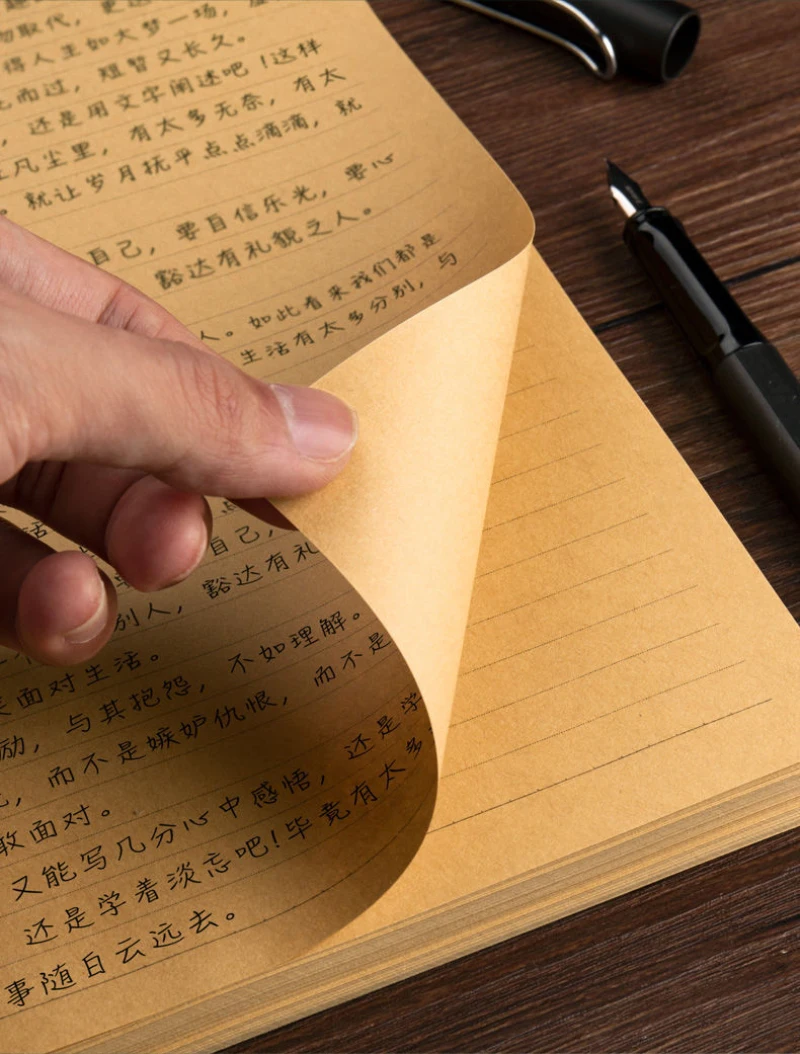 物取代，更
得人生如大梦一场，
而过，短暂又长久。
，还是用文字阐述吧！这样
凡尘里，有太多无奈，有太
。就让岁月抚平点点滴滴，就
自己，要自信乐光，要心
豁达有礼貌之人。
人。如此看来我们都是
生活有太多分别，与
活
自己，
别人，豁达有礼
面对生活。
，与其抱怨，不如理解。
励，而不是嫉妒仇恨，而不是
敢面对。
又能写几分心中感悟，还是学
还是学着淡忘吧！毕竟有太多
事随白云远去。